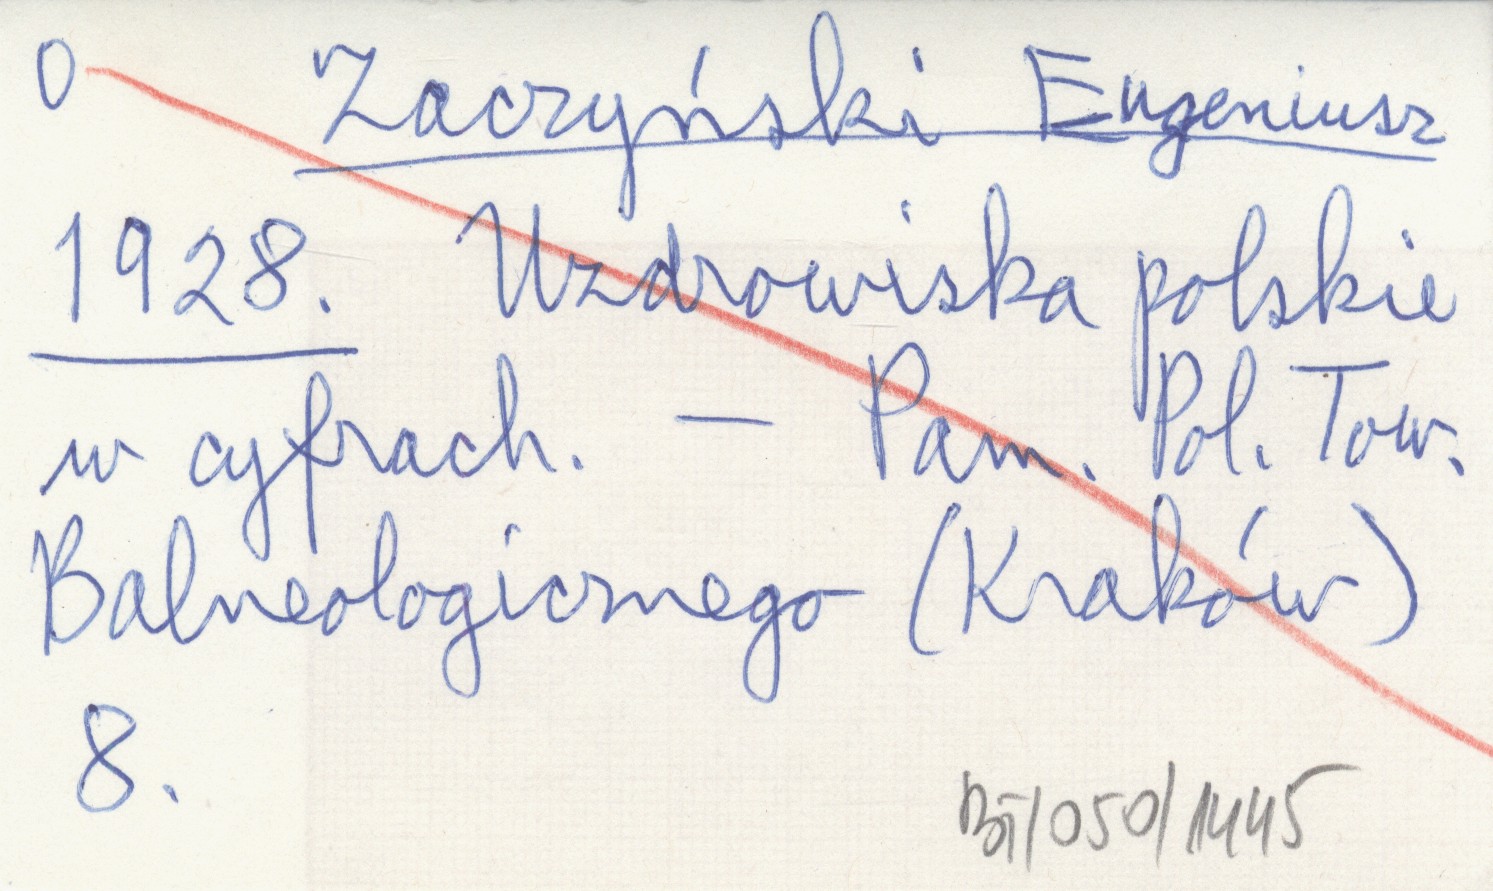 0 Zaczyński Eugeniusz
1928. Uzdrowiska polskie
w cyfrach. — Pam. Pol. Tow.
Balneologicznego (Kraków)
8.
/050/1445